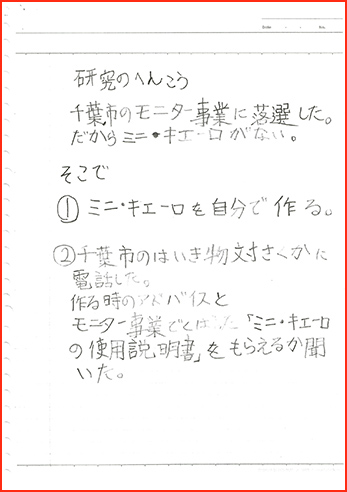 研究のへんこう
千葉市のモニター事業に落選した。
だからミニ・キエーロがない。
そこで
① ミニ・キエーロを自分で作る。
②千葉市のはいき物対さくかに
電話した。
作る時のアドバイスと
モニター事業でくばった「ミニ・キエーロ
の使用説明書」をもらえるか聞
いた。